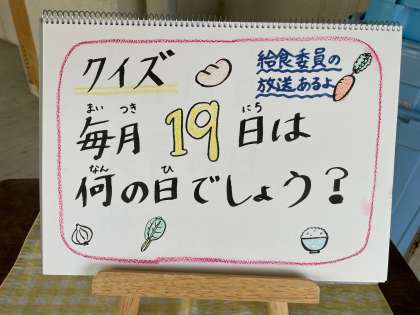 クイズ
給食委員の
放送あるよ
まい つき にち
毎月19日は
なん ひ
何の日でしょう?